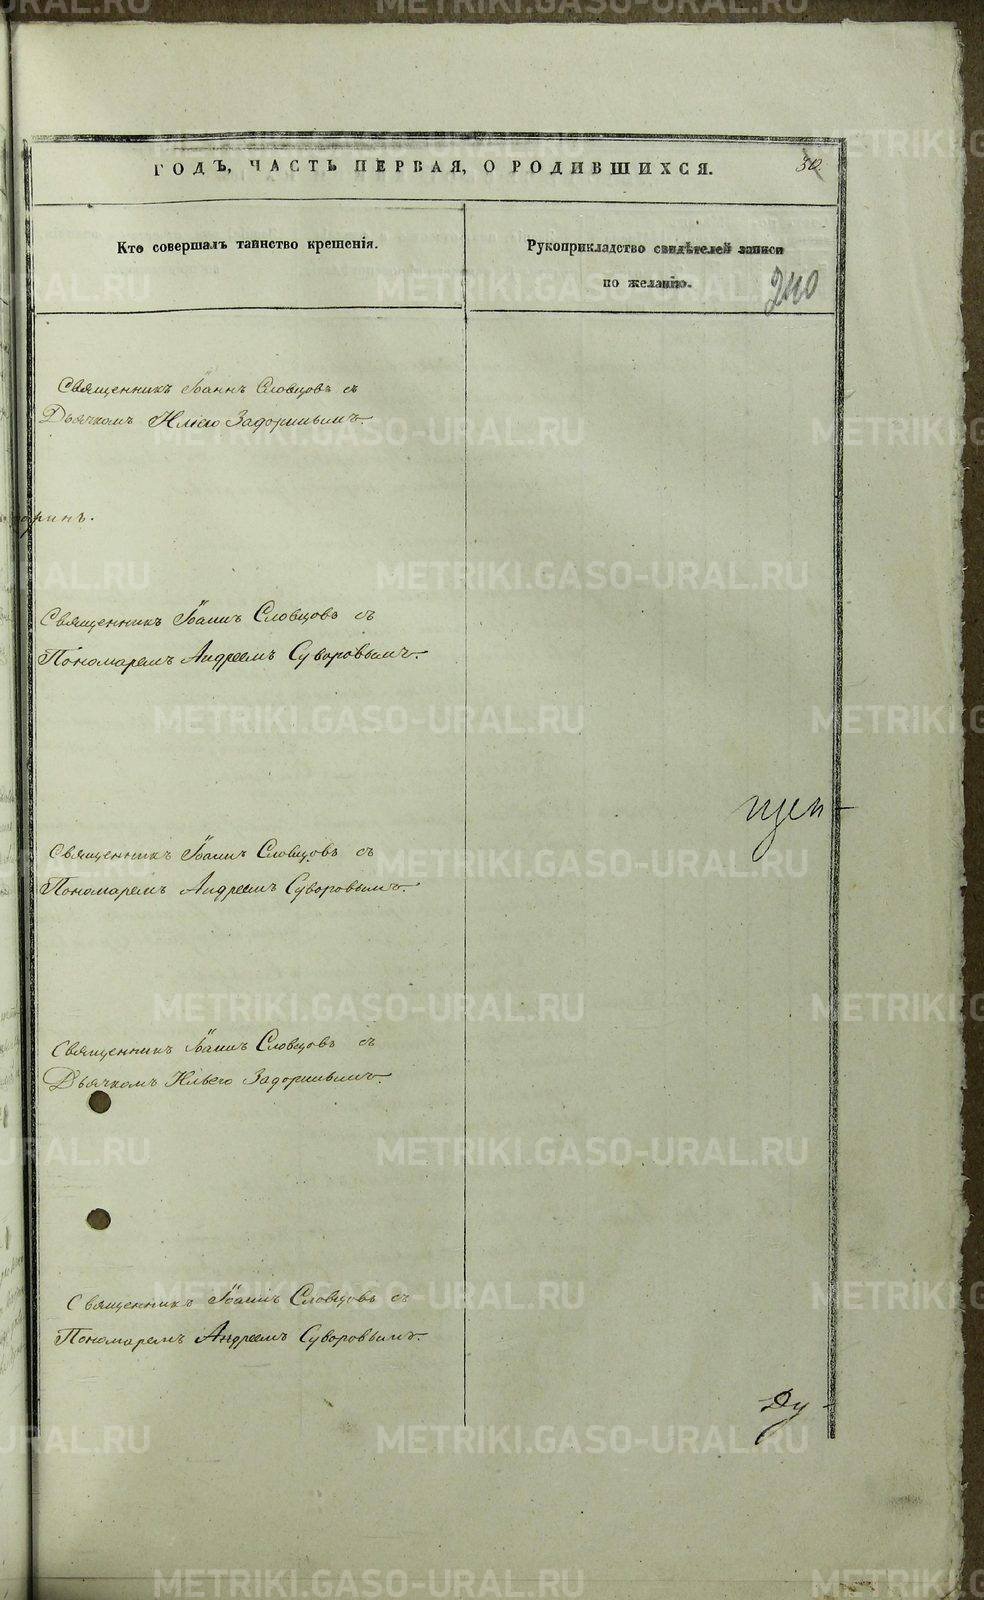 ГОДЪ, ЧАСТЬ ПЕРВАЯ, О РОДИВШИХСЯ.
Кто совершалъ таинство крещенія.
Рукоприкладство свидѣтелей записи
по желанію.
240
Священникъ Іоаннъ Словцовъ съ
Дьячкомъ Иліею Задоринымъ.
оринъ.
Священникъ Іоаннъ Словцовъ съ
Пономаремъ Андреемъ Суворовымъ.
щен-
Священникъ Іоаннъ Словцовъ съ
Пономаремъ Андреемъ Суворовымъ.
Священникъ Іоаннъ Словцовъ съ
Дьячкомъ Ильею Задоринымъ.
Священникъ Іоаннъ Словцовъ съ
Пономаремъ Андреемъ Суворовымъ.
-Ду-
METRIKI.GASO-URAL.RU